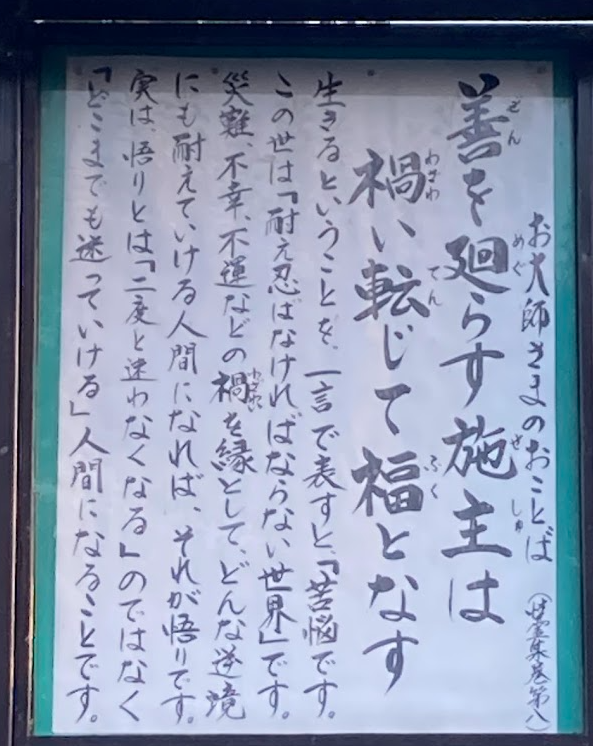 お大師さまのおことば（性霊集巻第八）
善を廻らす施主は
禍い転じて福となす
生きるということを、一言で表すと、「苦悩です。
この世は「耐え忍ばなければならない世界」です。
災難、不幸、不運などの禍を縁として、どんな逆境
にも耐えていける人間になれば、それが悟りです。
実は、悟りとは「二度と迷わなくなる」のではなく
「どこまでも迷っていける」人間になることです。